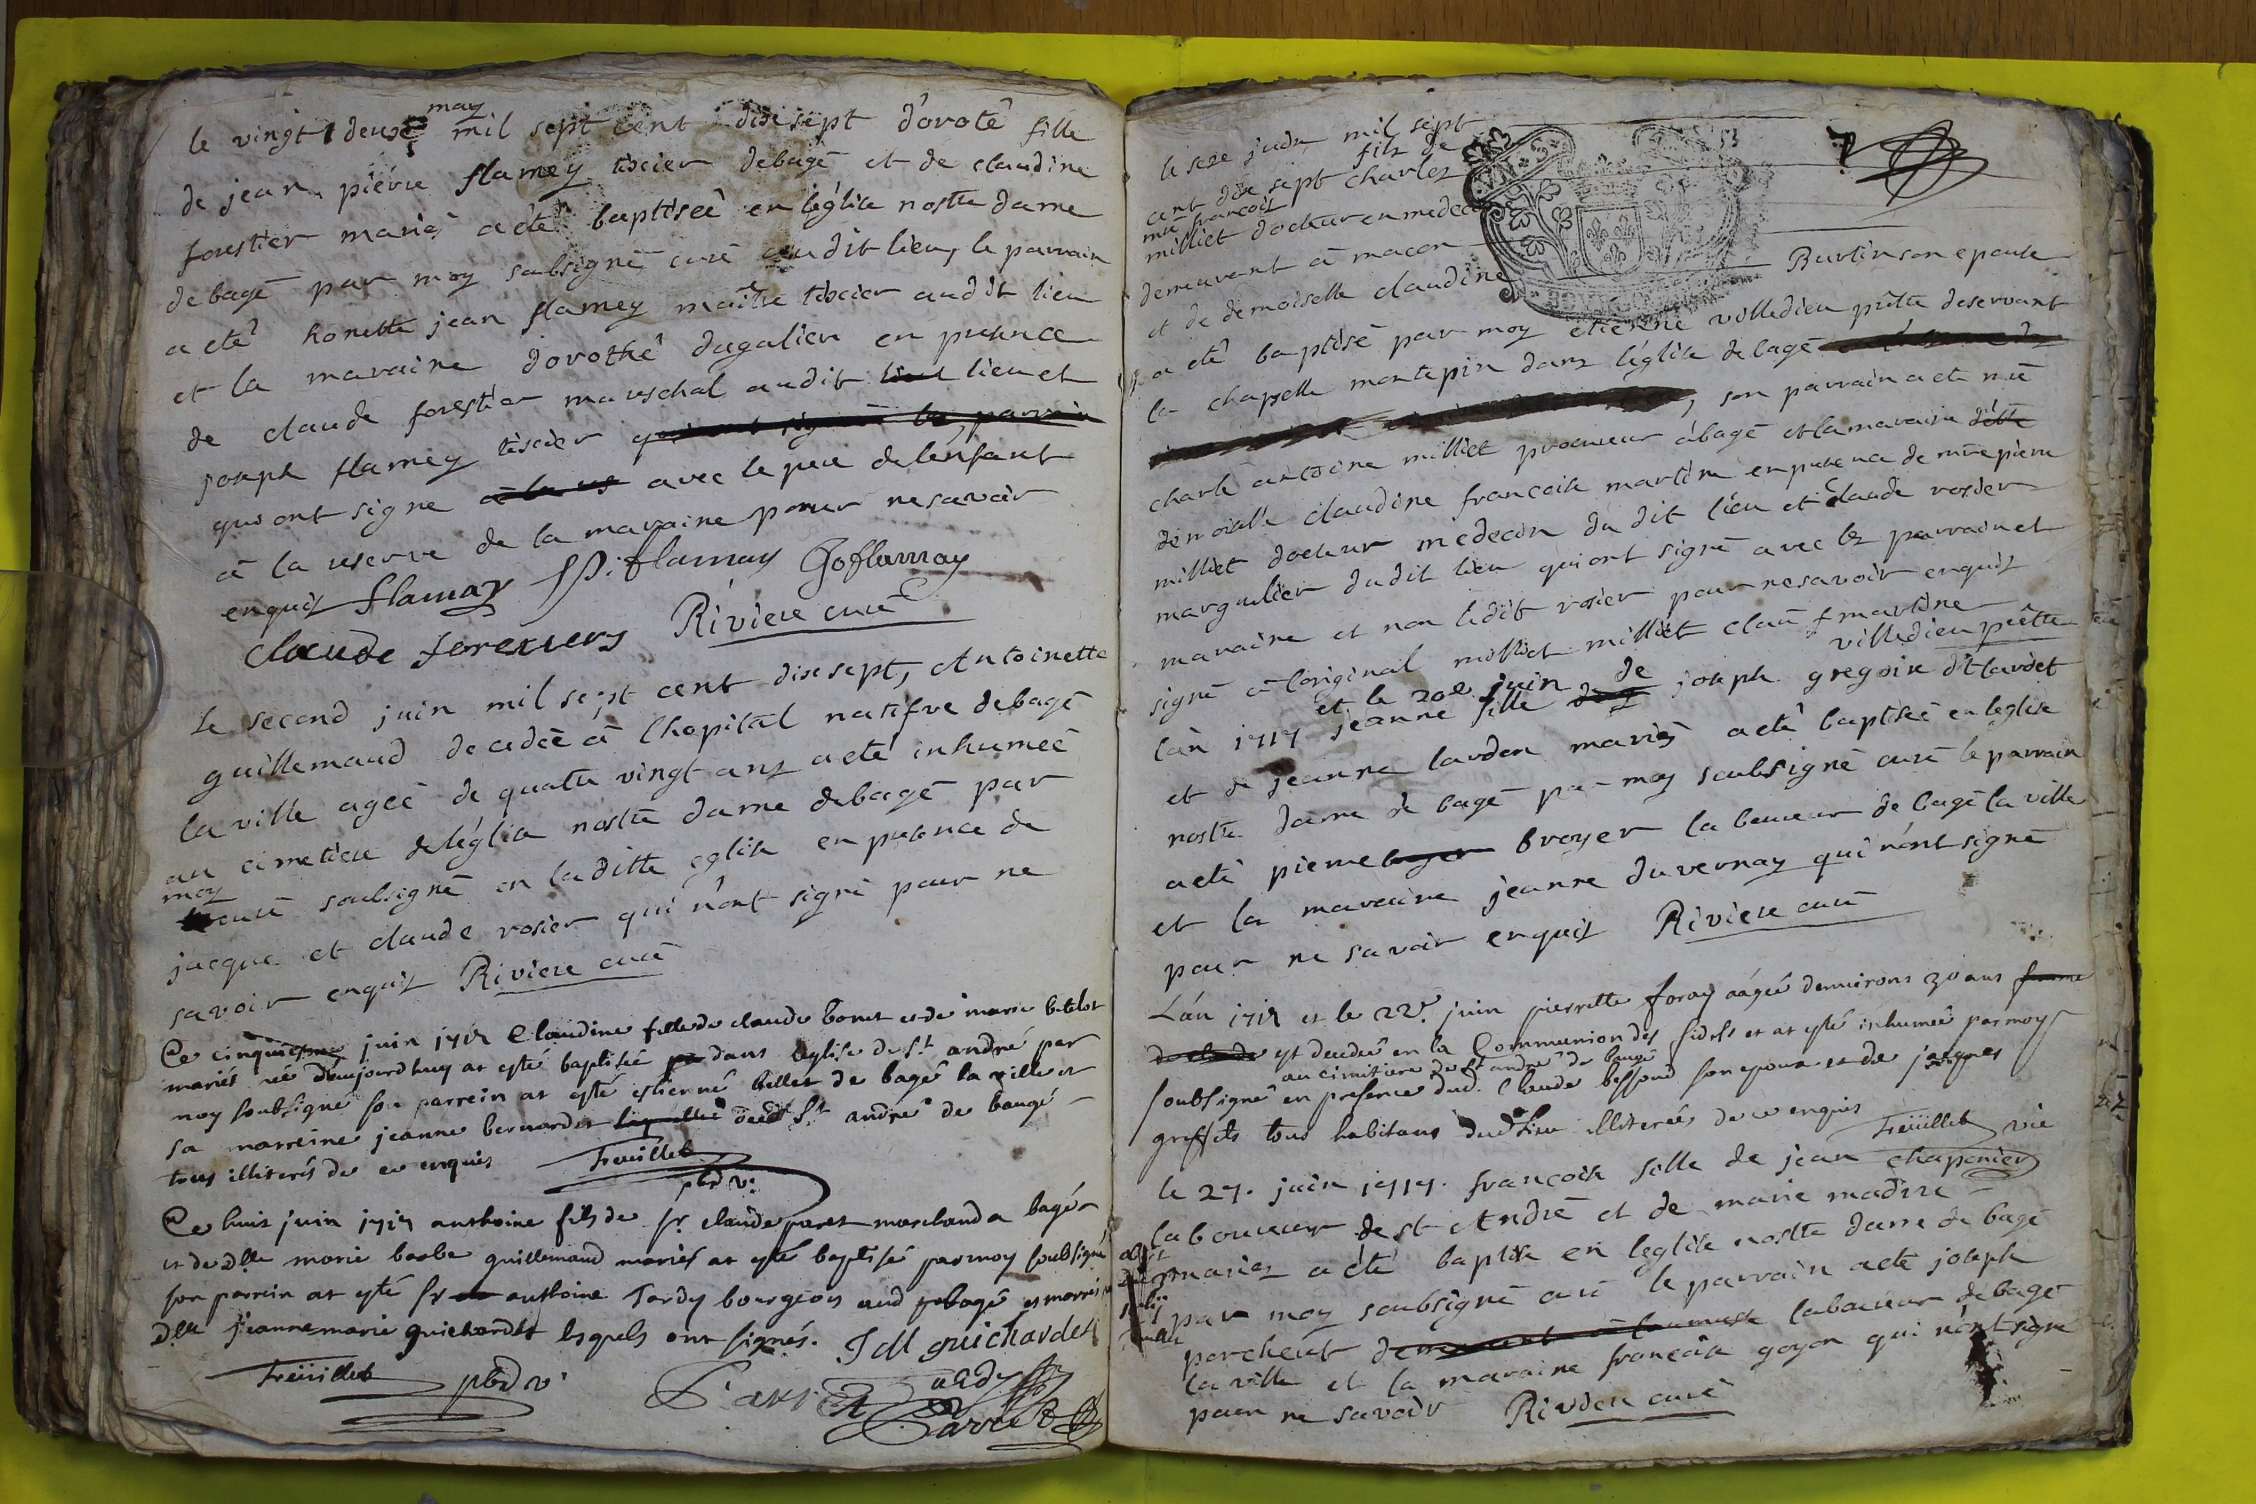 may
le vingt deuxe mil sept cent dixsept dorotê fille
de jean piérre flamey tixier debagé et de claudine
forestier mariés a eté baptiseé en léglise nostre dame
debagé par moy soubsigné curé audit lieu, le parrain
a eté honeste jean flamey maître tixier audit lieu
et la maraine dorothê dagalier en presence
de claude forestier mareschal audit lieu et
joseph flamey tixier
qui ont signe avec le pere delenfant
à la reserve de la maraine pour ne savoir
enquis flamay JP. flamay Joflamay
claude forextiers Riviere curé
Le second juin mil sept cent dixsept, Antoinette
guillemaud decedeé à lhopital natifve debagé
la ville ageé de quatre vingt ans a eté inhumeé
au cimetiere deléglise nostre dame debagé par
moy
curé soubsigné en laditte eglise en presence de
jacque et claude rosier qui nont signé pour ne
savoir enquis Riviere curé
Ce cinquiesme juin 1717 Claudine fille de claude bonet et de marie betelot
mariés née daujourdhuy at esté baptisée dans leglise de St andré par
moy soubsigné son parrein at esté estienne bellet de bagé la ville et
sa marreine jeanne bernardet dud St andré de baugé
tous illiterés de ce enquis Freüillet
pbr v.
Ce huit juin 1717 anthoine fils de sr. claude paret marchand a bagé
et de dlle marie barbe guillemaud mariés at esté baptisé par moy soubsigné
son parrein at esté sr anthoine Tardy bourgeois aud bagé et marreine
Dlle jeanne marie guichardet lesquels ont signés. J M guichardet
Freüillet pbr v. Paret tardy
Parret
le seze juin mil sept 53
cent dix sept charles fils de
mre françois
milliet docteur en medecine
demeurant à macon
et de demoiselle claudine Burtin son epouse
a eté baptisé par moy etienne villedieu prêtre deservant
la chapelle montepin dans léglise de bagé
, son parrain a eté mre
charle antoine milliet procureur à bagé et la maraine
demoiselle claudine francoise martine en presence de mre pierre
milliet docteur medecin du dit lieu et claude rosier
margulier dudit lieu qui ont signé avec les parrain et
maraine et non ledit rosier pour ne savoir enquis
signé à loriginal milliet milliet clau f martine
villedieu prêtre
et le 20e juin de
lan 1717 jeanne fille joseph gregoire dit lardet
et de jeanne lardon mariés a eté baptiseé en leglise
nostre dame de bagé par moy soubsigné curé le parrain
a eté pierre broyer laboureur de bagé la ville
et la maraine jeanne duvernay qui nont signé
pour ne savoir enquis Riviere curé
Lán 1717 et le 22e. juin pierrette foray aagée denvirons 30 ans
est decedée en la Communion des fidels et at esté inhumée par moy
au cimitiere de st andré de baugé
soubsigné en presence dud. Claude bessond son epoux et de jacques
greffets tous habitans dud lieu illiterés de ce enquis Freüillet vic
le 27. juin 1717. francoise fille de jean chaponier
laboureur de st Andre et de marie madire
mariez a eté baptise en leglise nostre dame de bagé
par moy soubsigné curé le parrain a eté joseph
percheut laboureur de bagé
la ville et la maraine francoise goyon qui nont signé
pour ne savoir Riviere curé